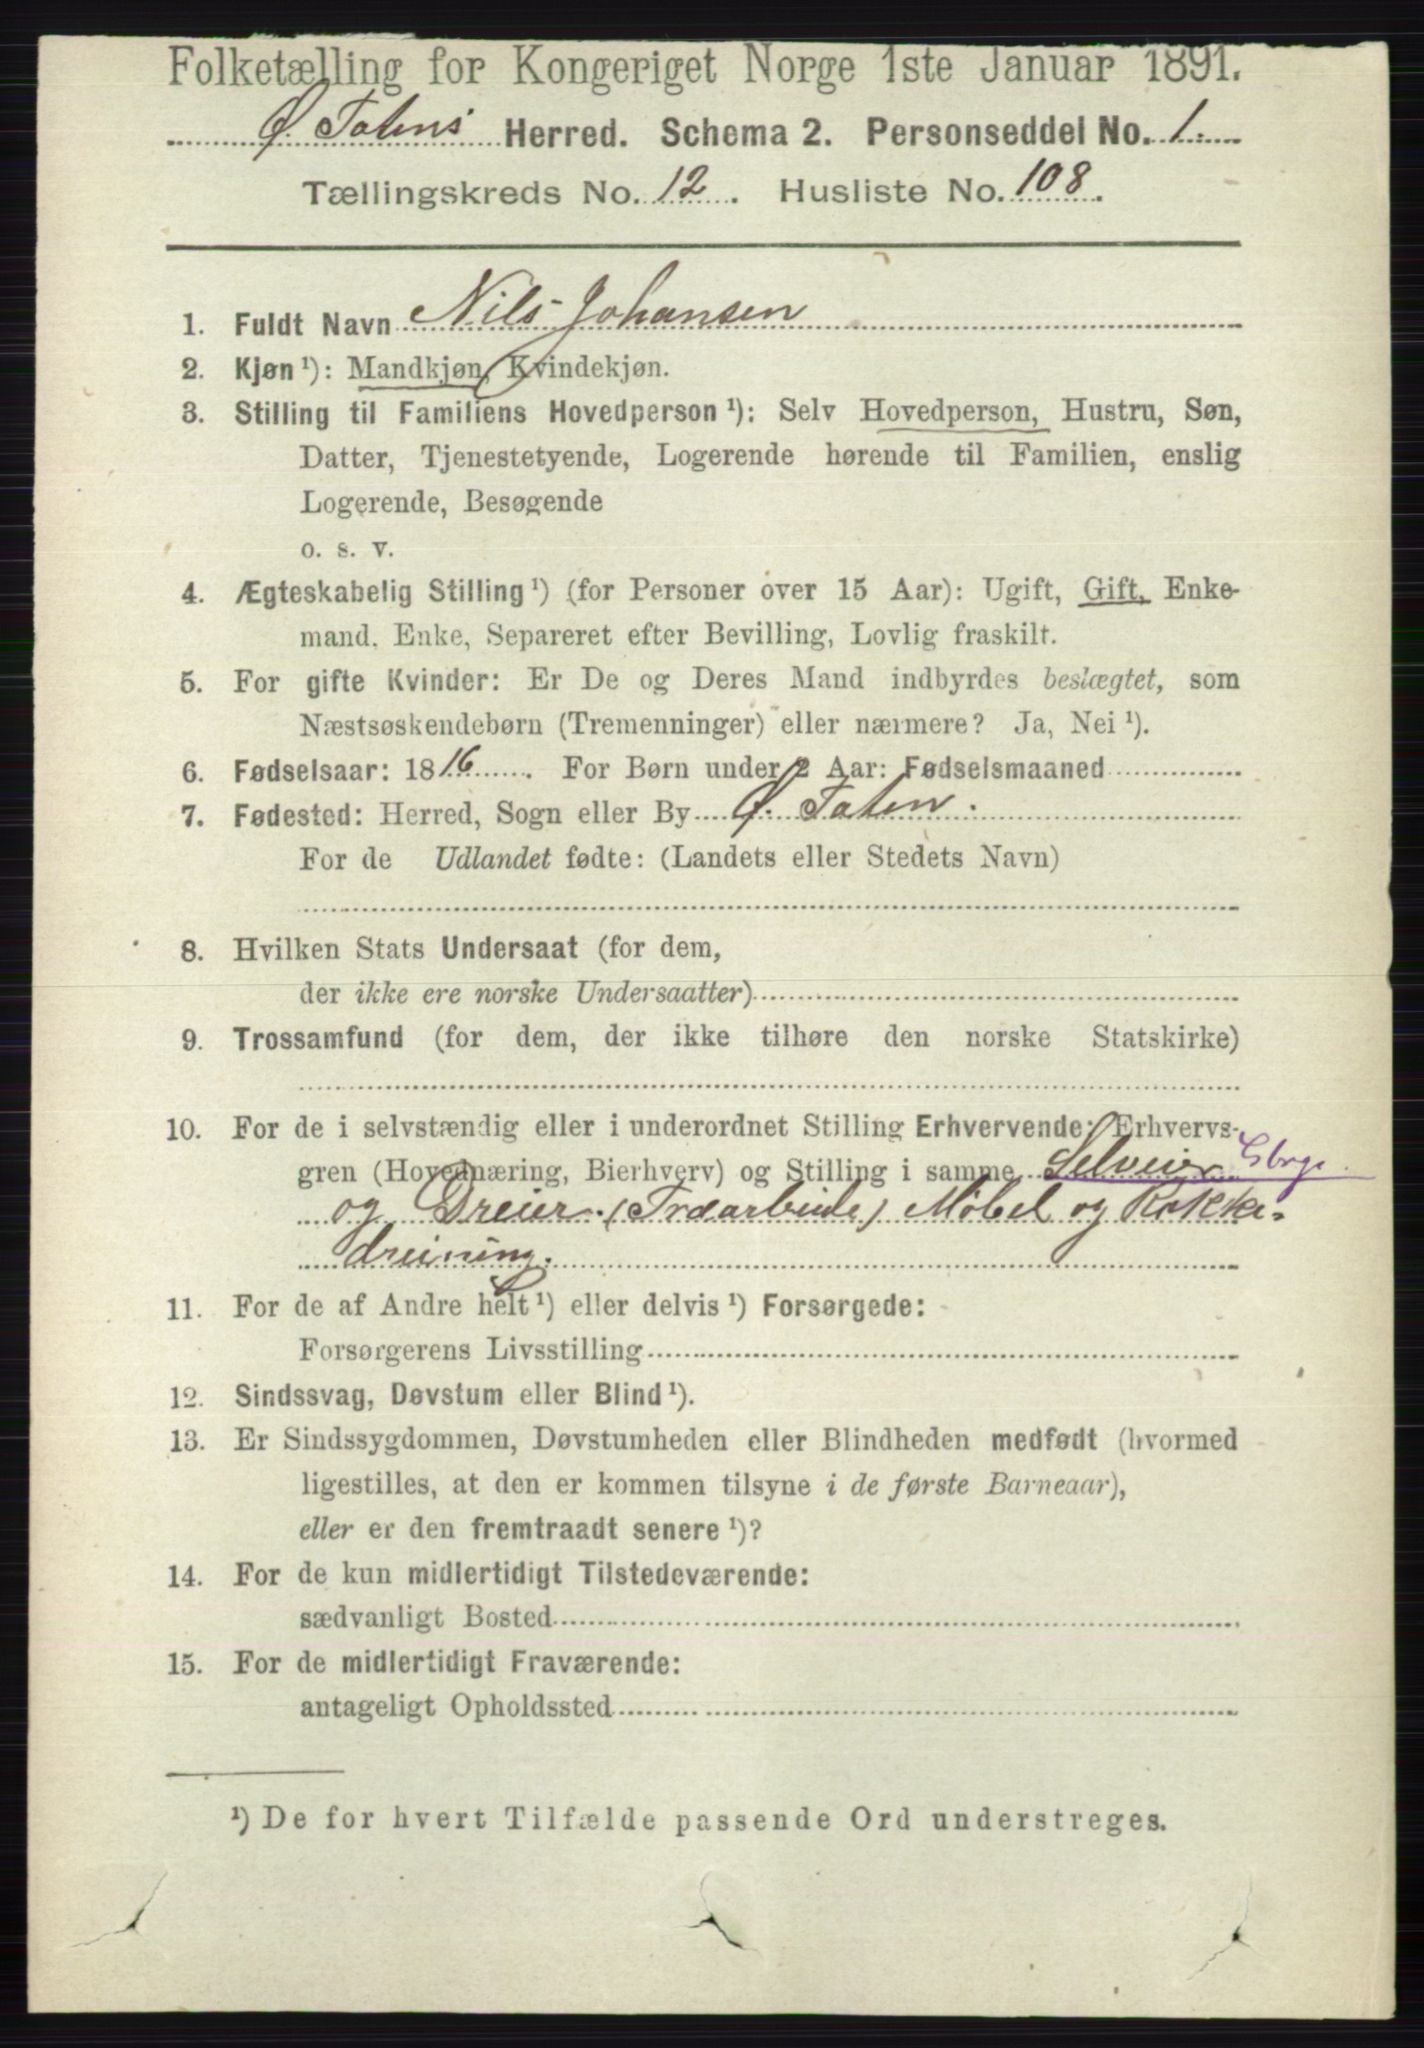 Folketælling for Kongeriget Norge 1ste Januar 1891.
Ø. Totens Herred. Schema 2. Personseddel No. 1.
Tællingskreds No. 12. Husliste No. 108.
1. Fuldt Navn Nils Johansen
2. Kjøn ¹): Mandkjøn, Kvindekjøn.
3. Stilling til Familiens Hovedperson ¹): Selv Hovedperson, Hustru, Søn,
Datter, Tjenestetyende, Logerende hørende til Familien, enslig
Logerende, Besøgende
o. s. v.
4. Ægteskabelig Stilling ¹) (for Personer over 15 Aar): Ugift, Gift, Enke-
mand, Enke, Separeret efter Bevilling, Lovlig fraskilt.
5. For gifte Kvinder: Er De og Deres Mand indbyrdes beslægtet, som
Næstsøskendebørn (Tremenninger) eller nærmere? Ja, Nei ¹).
6. Fødselsaar: 1816. For Børn under 2 Aar: Fødselsmaaned
7. Fødested: Herred, Sogn eller By Ø. Toten.
For de Udlandet fødte: (Landets eller Stedets Navn)
8. Hvilken Stats Undersaat (for dem,
der ikke ere norske Undersaatter)
9. Trossamfund (for dem, der ikke tilhøre den norske Statskirke)
10. For de i selvstændig eller i underordnet Stilling Erhvervende: Erhvervs-
gren (Hovednæring, Bierhverv) og Stilling i samme Selveier Gbrg.
og Dreier. (Træarbeide) Møbel og Rokke-
dreining.
11. For de af Andre helt ¹) eller delvis ¹) Forsørgede:
Forsørgerens Livsstilling
12. Sindssvag, Døvstum eller Blind ¹).
13. Er Sindssygdommen, Døvstumheden eller Blindheden medfødt (hvormed
ligestilles, at den er kommen tilsyne i de første Barneaar),
eller er den fremtraadt senere ¹)?
14. For de kun midlertidigt Tilstedeværende:
sædvanligt Bosted
15. For de midlertidigt Fraværende:
antageligt Opholdssted
¹) De for hvert Tilfælde passende Ord understreges.